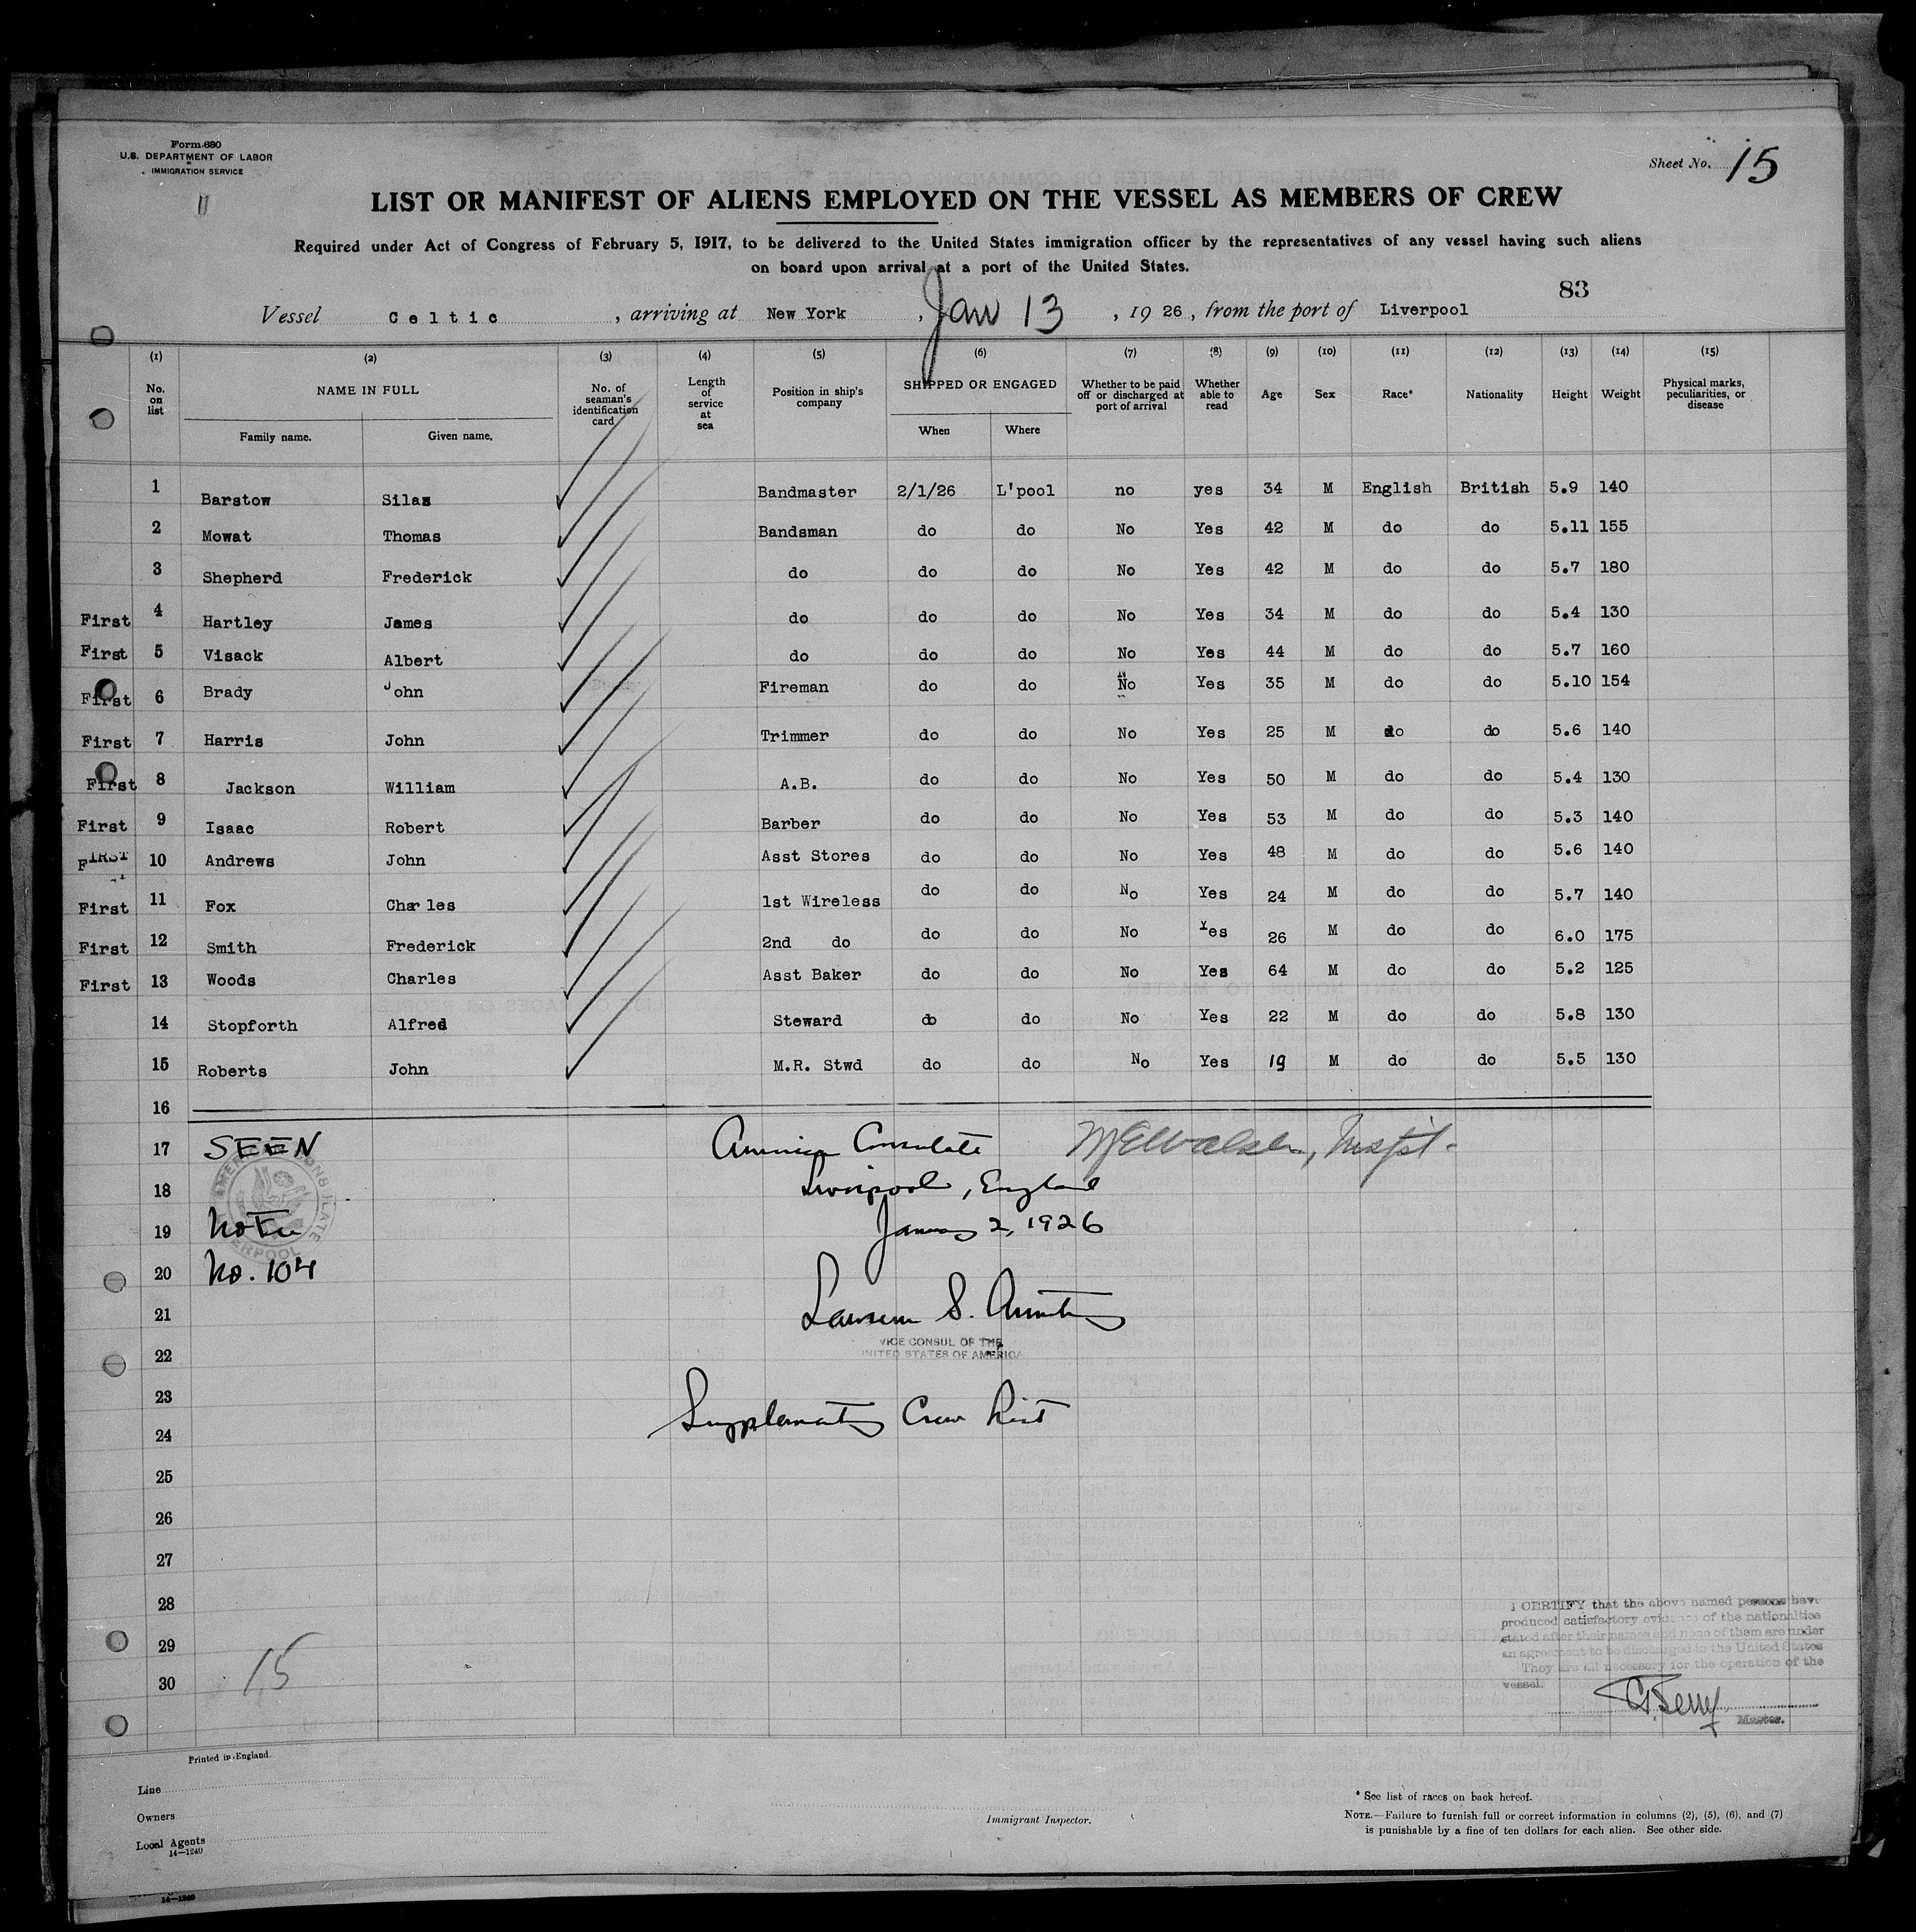 Form 680
U.S. DEPARTMENT OF LABOR
IMMIGRATION SERVICE
Sheet No. 15
LIST OR MANIFEST OF ALIENS EMPLOYED ON THE VESSEL AS MEMBERS OF CREW
Required under Act of Congress of February 5, 1917, to be delivered to the United States immigration officer by the representatives of any vessel having such aliens
on board upon arrival at a port of the United States.
83
Vessel Celtic, arriving at New York, Jan 13, 1926, from the port of Liverpool
(1) (2) (3) (4) (5) (6) (7) (8) (9) (10) (11) (12) (13) (14) (15)
No. on list NAME IN FULL No. of seaman's identification card Length of service at sea Position in ship's company SHIPPED OR ENGAGED Whether to be paid off or discharged at port of arrival Whether able to read Age Sex Race* Nationality Height Weight Physical marks, peculiarities, or disease
Family name. Given name. When Where
1 Barstow Silas Bandmaster 2/1/26 L'pool no yes 34 M English British 5.9 140
2 Mowat Thomas Bandsman do do No Yes 42 M do do 5.11 155
3 Shepherd Frederick do do do No Yes 42 M do do 5.7 180
First 4 Hartley James do do do No Yes 34 M do do 5.4 130
First 5 Visack Albert do do do No Yes 44 M do do 5.7 160
First 6 Brady John Fireman do do No Yes 35 M do do 5.10 154
First 7 Harris John Trimmer do do No Yes 25 M do do 5.6 140
First 8 Jackson William A.B. do do No Yes 50 M do do 5.4 130
First 9 Isaac Robert Barber do do No Yes 53 M do do 5.3 140
FIRST 10 Andrews John Asst Stores do do No Yes 48 M do do 5.6 140
First 11 Fox Charles 1st Wireless do do No Yes 24 M do do 5.7 140
First 12 Smith Frederick 2nd do do do No Yes 26 M do do 6.0 175
First 13 Woods Charles Asst Baker do do No Yes 64 M do do 5.2 125
14 Stopforth Alfred Steward do do No Yes 22 M do do 5.8 130
15 Roberts John M.R. Stwd do do No Yes 19 M do do 5.5 130
16
17 SEEN American Consulate
18 Liverpool, England
19 No Fee January 2, 1926
20 No. 104
21
VICE CONSUL OF THE
22 UNITED STATES OF AMERICA
23
Supplementary Crew List
24
25
26
27
28
29
30
15
I CERTIFY that the above named persons have
produced satisfactory evidence of the nationalities
stated after their names and none of them are under
an agreement to be discharged in the United States
They are all necessary for the operation of the
vessel.
Master.
Printed in England.
Line
Owners
Local Agents
14—1240
Immigrant Inspector.
* See list of races on back hereof.
NOTE.—Failure to furnish full or correct information in columns (2), (5), (6), and (7)
is punishable by a fine of ten dollars for each alien. See other side.
14—1240